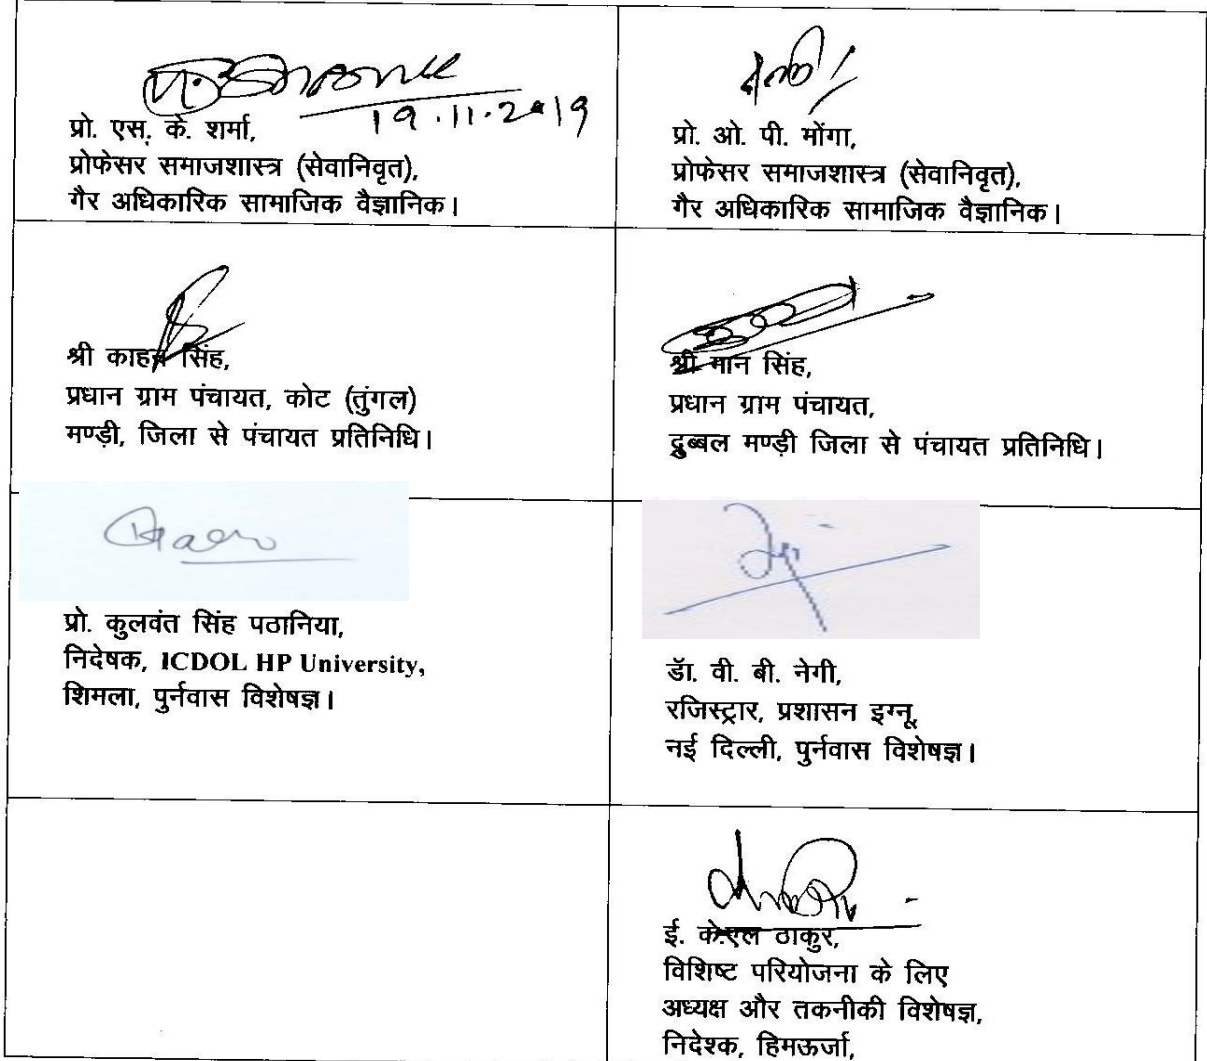 19.11.2019
प्रो. एस. के. शर्मा,
प्रोफेसर समाजशास्त्र (सेवानिवृत),
गैर अधिकारिक सामाजिक वैज्ञानिक।
प्रो. ओ. पी. मोंगा,
प्रोफेसर समाजशास्त्र (सेवानिवृत),
गैर अधिकारिक सामाजिक वैज्ञानिक।
श्री काहन सिंह,
प्रधान ग्राम पंचायत, कोट (तुंगल)
मण्ड़ी, जिला से पंचायत प्रतिनिधि।
श्री मान सिंह,
प्रधान ग्राम पंचायत,
द्रुब्बल मण्ड़ी जिला से पंचायत प्रतिनिधि।
प्रो. कुलवंत सिंह पठानिया,
निदेषक, ICDOL HP University,
शिमला, पुर्नवास विशेषज्ञ।
डॅा. वी. बी. नेगी,
रजिस्ट्रार, प्रशासन इग्नू,
नई दिल्ली, पुर्नवास विशेषज्ञ।
ई. के.एल ठाकुर,
विशिष्ट परियोजना के लिए
अध्यक्ष और तकनीकी विशेषज्ञ,
निदेश्क, हिमऊर्जा,